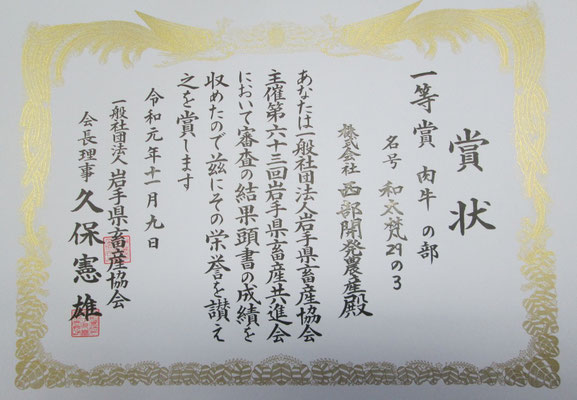 賞状
一等賞 肉牛の部
名号 和太梵29の3
株式会社 西部開発農産殿
あなたは一般社団法人岩手県畜産協会
主催第六十三回岩手県畜産共進会
において審査の結果頭書の成績を
収めたので茲にその栄誉を讃え
之を賞します
令和元年十一月九日
一般社団法人 岩手県畜産協会
会長理事 久保憲雄